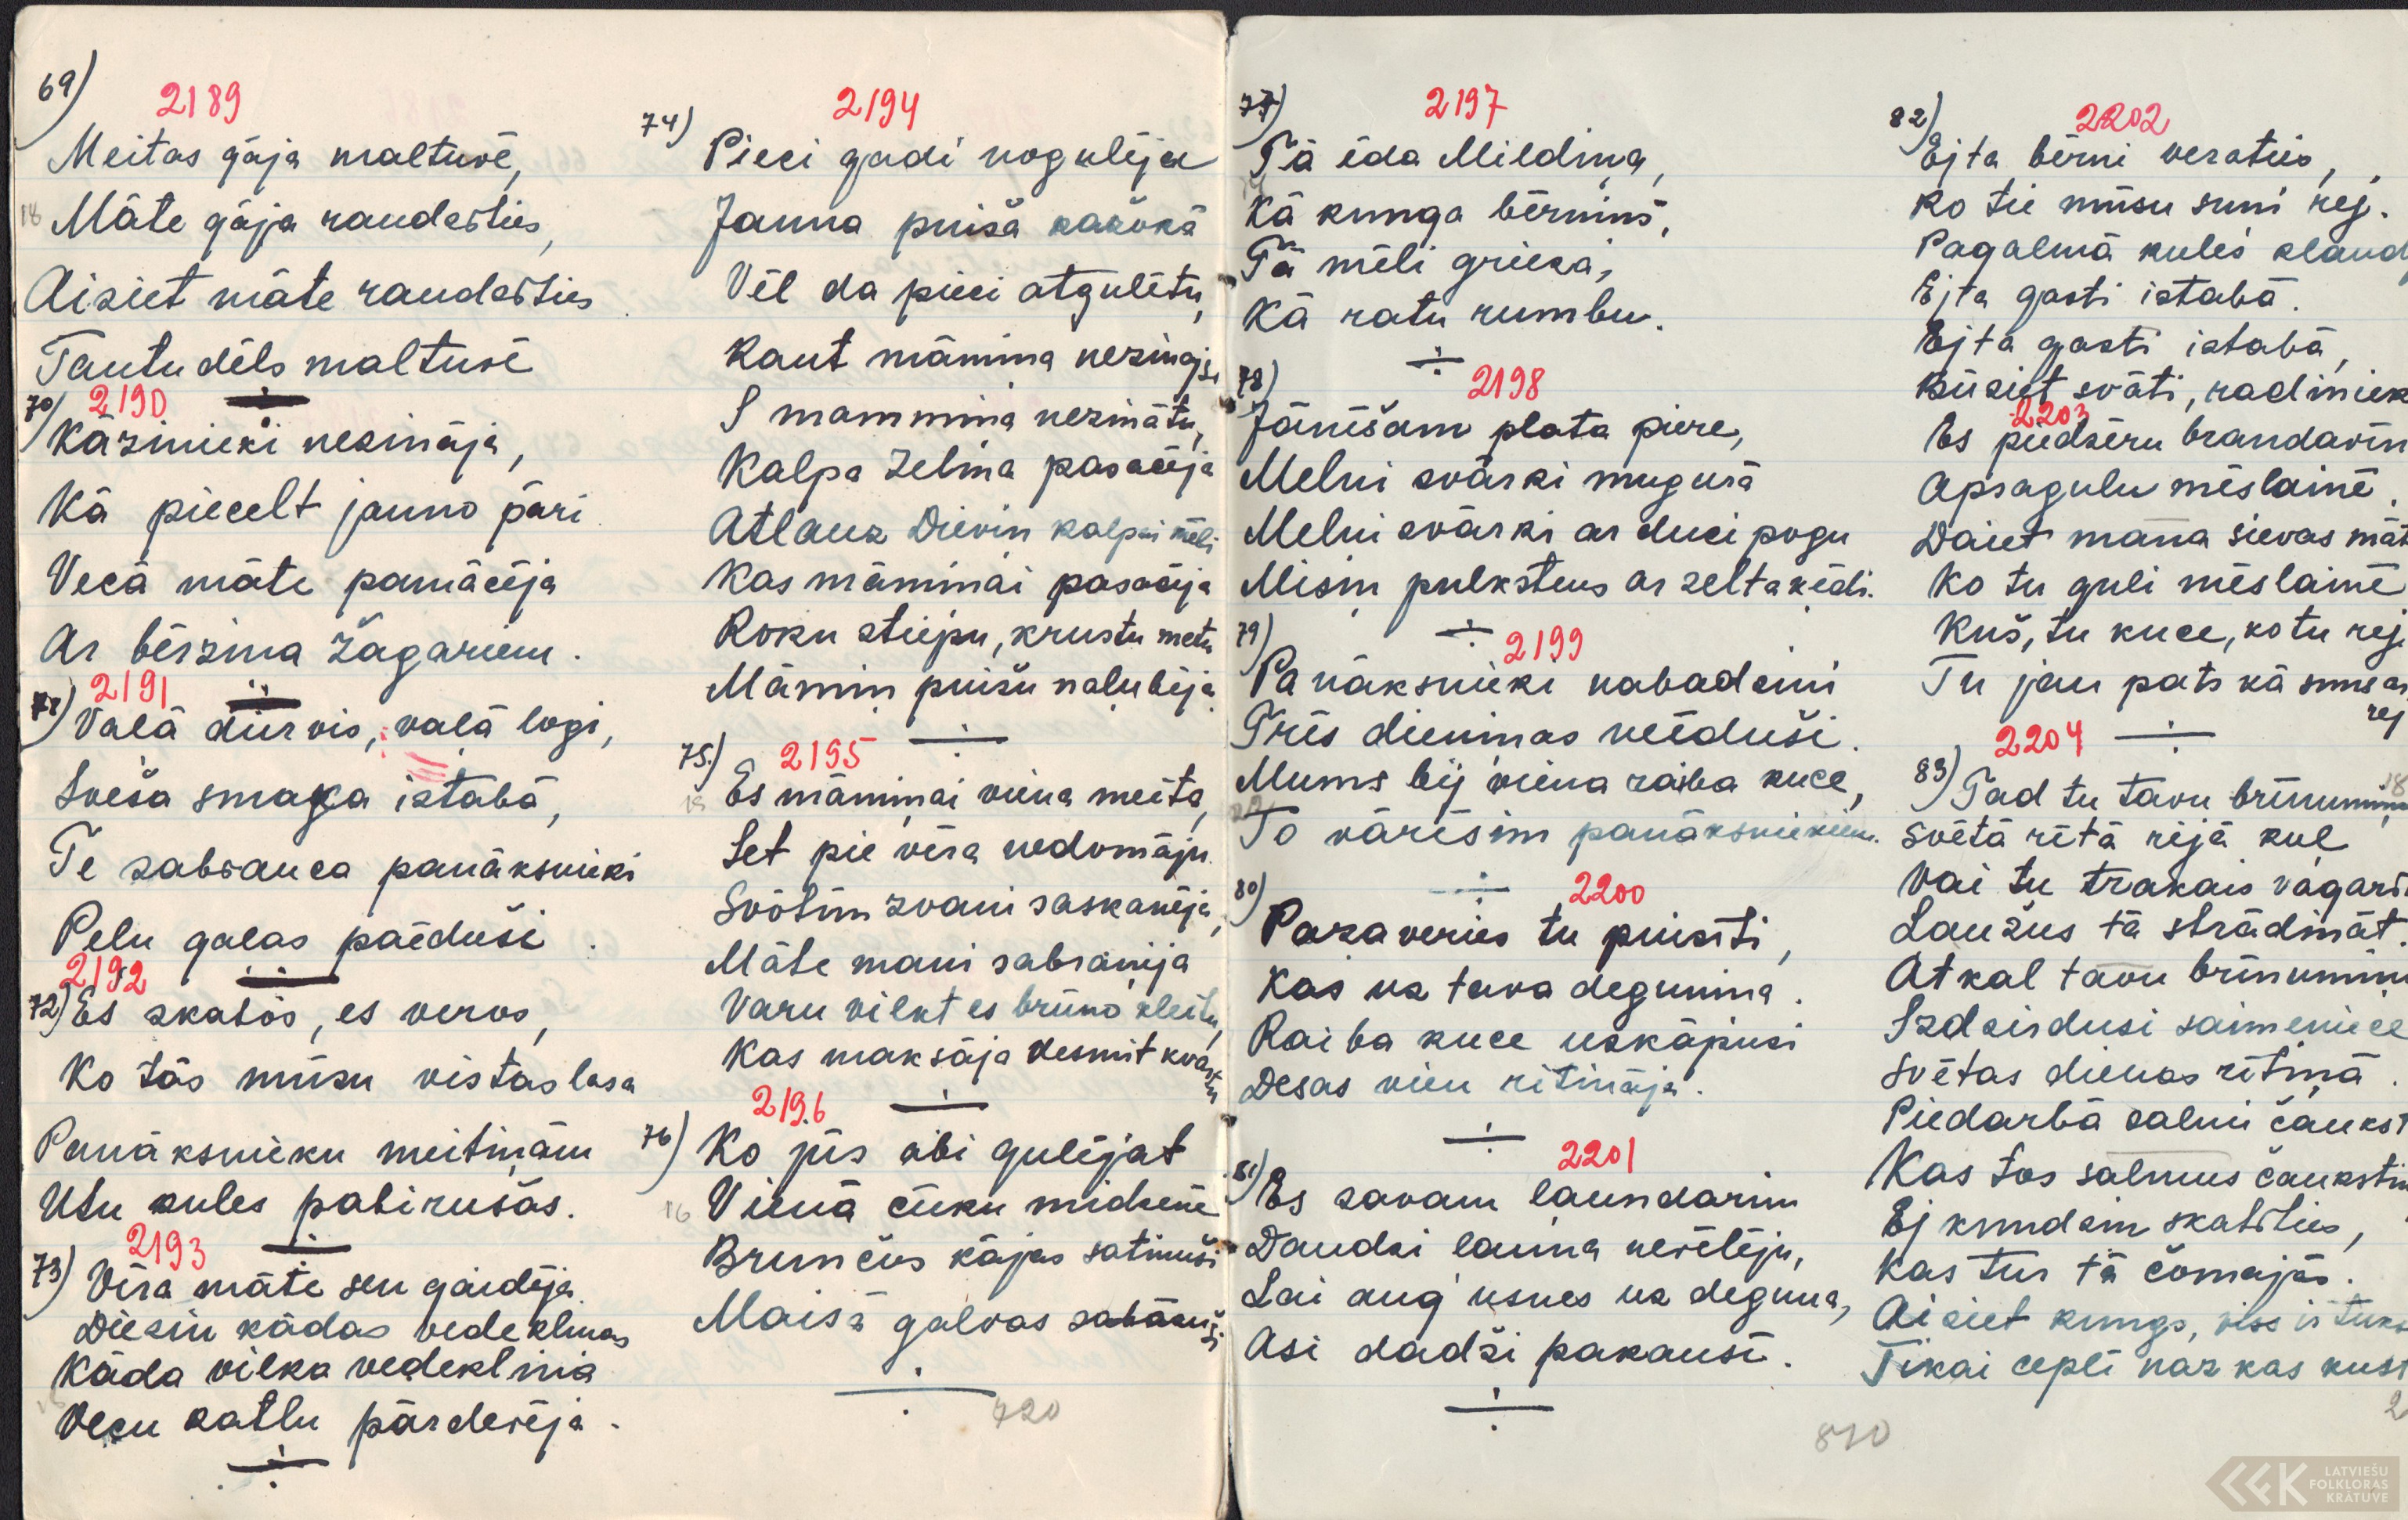 69)
2189
Meitas gāja maltuvē,
18 Māte gāja raudzīties,
Aiziet māte raudzīties
Tautu dēls maltuvē
70) 2190
Kāzinieki nezināja,
Kā piecelt jauno pāri
Vecā māte pamācēja
Ar bērziņa žagariem.
71) 2191
Vaļā durvis, vaļā logi,
Sveša smaga istabā,
Te sabrauca panāksnieki
Pelu galas paēduši
2192
72) Es skatos, es veros,
Ko tās mūsu vistas lasa
Panāksnieku meitiņām
Utu kules pabirušas.
2193
73) Vīra māte sen gaidēja
Diezin kādas vedeklinas
Kāda vilka vedeklinia
Vecu katlu pārdevēja.
74) 2194
Pieci gadi nogulēju
Jauna puiša kažokā
Vēl da pieci atgulētu,
Kaut māmiņa nezinaja
I mammiņa nezinātu,
Kalpa zelma pasacēja
Atlauz Dieviņ kalpui mēli
Kas māmiņai pasacēja
Roku stiepu, krustu metu
Māmiņ puišu nalubēja.
75.) 2195
Es māmiņai viena meita,
Set pie vēra nedomāju.
Svētim zvani saskanēja,
Māte mani sabranija
Varu vilkt es brūno kleitu,
Kas maksāja desmit kvartu
2196
76) Ko jūs abi gulējat
16 Vienā cūku midzenē
Brunčus kājas satinuši
Maisā galvas sabāzuši
720
77) 2197
Tā ēda Mildiņa,
Kā kunga bērniņš,
Tā mēli grieza,
Kā ratu rumbu.
78) 2198
Jānīšam plata piere,
Melni svārki mugurā
Melni svārki ar duci pogu
Misiņ pulkstens ar zelta ķēdi.
79) 2199
Panāksnieki nabadziņi
Trīs dieniņas neēduši.
Mums bij viena raiba kuce,
To vārīsim panāksniekiem.
80) 2200
Pazaveries tu puisīti,
Kas uz tava deguniņa.
Raiba kuce uzkāpusi
Desas vien ritināja.
81) 2201
Es savam ļaundarim
Daudzi ļauna nevēlēju,
Lai aug usnes uz deguna,
Asi dadži pakausī.
810
82) 2202
Ejta bērni veraties,
Ko tie mūsu suņi rej.
Pagalmā kules slaud
Ejta gasti istabā.
Ejta gasti istabā,
Būsiet svāti, radiniek
2203
Es piedzēru brandavīn
Apsagulu mēslainē.
Daiet mana sievas māt
Ko tu guli mēslainē
Kuš, tu kuce, ko tu rej
Tu jau pats kā suns as
rej
2204
83) Tad tu tavu brīnumiņu
Svētā rītā rijā kuļ
Vai tu trakais vagari
Laužus tā strādināt.
Atkal tavu brīnumiņu
Izdzirdusi saimeniece
Svētas dienas rītiņā.
Piedarbā salmi čaukst
Kas tos salmus čaukstin
Ej kundziņ skatīties,
Kas tur tā čomajās.
Aiziet kungs, viss ir tuks
Tikai ceplī naz kas kust
LATVIEŠU
FOLKLORAS
KRĀTUVE